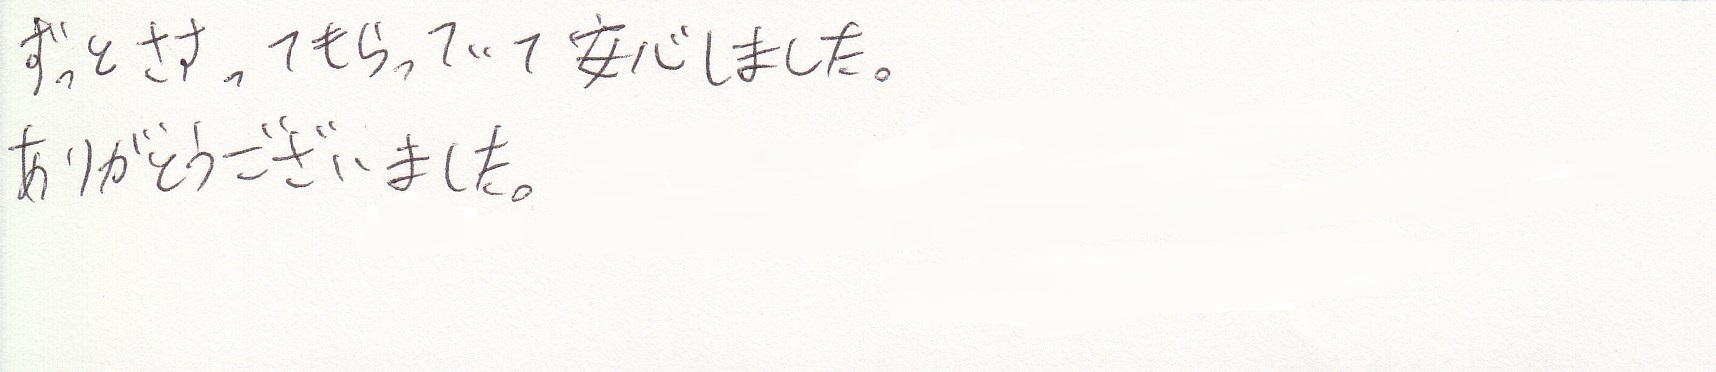 ずっとさすってもらっていて安心しました。
ありがとうございました。